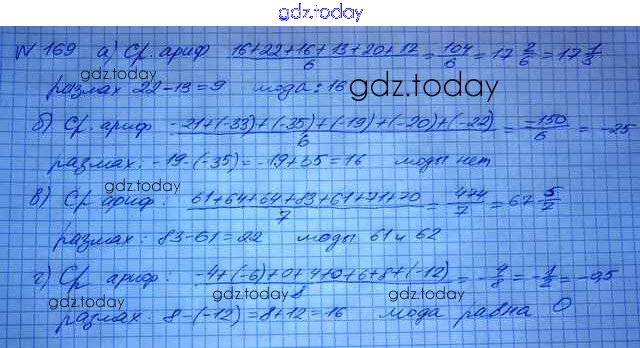 gdz.today
N 169 а) Ср. ариф (16+22+16+13+20+17)/6 = 104/6 = 17 2/6 = 17 1/3
размах 22-13=9 мода: 16 gdz.today
б) Ср. ариф (-21+(-33)+(-35)+(-19)+(-20)+(-22))/6 = -150/6 = -25
gdz.today
размах: -19-(-35)=-19+35=16 моды нет
gdz.today
в) Ср. ариф: (61+64+64+83+61+71+70)/7 = 474/7 = 67 5/7
gdz.today
размах: 83-61=22 моды 61 и 62
г) Ср. ариф: (-4+(-6)+0+4+0+6+8+(-12))/8 = -4/8 = -1/2 = -0,5
gdz.today gdz.today
размах: 8-(-12)=8+12=16 мода равна 0